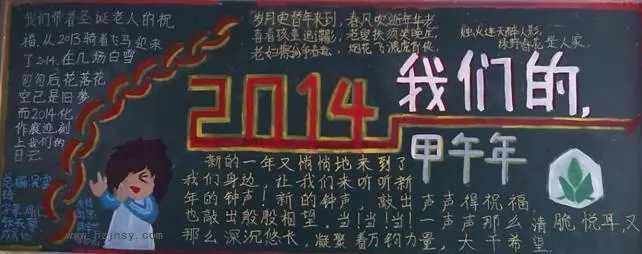 我们带着圣诞老人的祝
福,从2013骑着飞马迎来
了2014.在几场白雪
匆匆后花落花
空已是旧梦
而2014化
作痕迹刻
上我们的
日云
岁月史诗年来到,春风
喜看孩童
老妇 烟花飞
烛火连天醉人影,
绿野春花是人家.
2014
我们的,
甲午年
新的一年又悄悄地来到了
我们身边,让我们来听听新
年的钟声!新的钟声,敲出声声得祝福,
也敲出殷殷相望,当!当!当!一声声那么清脆悦耳,又
那么深沉悠长,凝聚着万钧力量,大千希望.
总编:吴雪
琦
www.hzjnsy.com